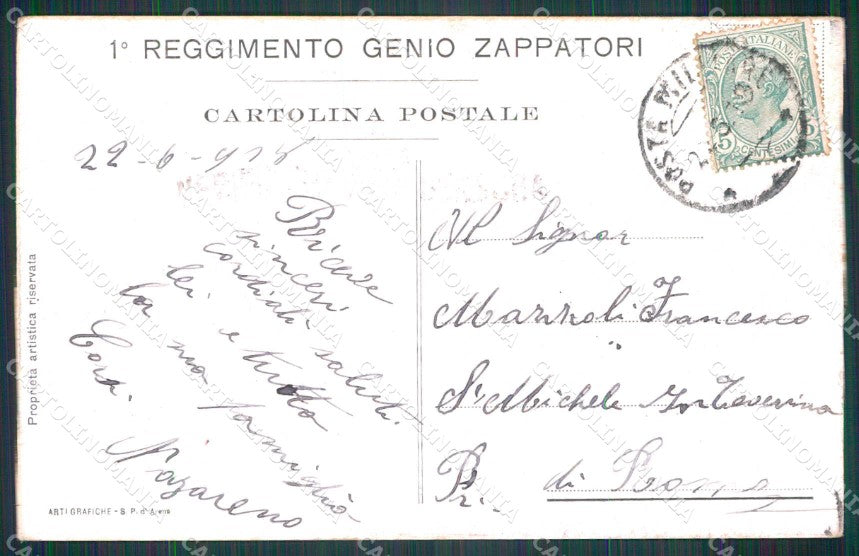 1° REGGIMENTO GENIO ZAPPATORI
CARTOLINA POSTALE
22-6-915
Riceve
sinceri
cordiali saluti
lei e tutta
la sua famiglia
Nazareno
Al Signor
Marzoli Francesco
S. Michele In Taverina
Pr. di Roma
POSTA MILITARE
POSTE ITALIANE
5 CENTESIMI 5
Proprietà artistica riservata
ARTI GRAFICHE - S. P. d'Arena
CARTOLINOMANIA